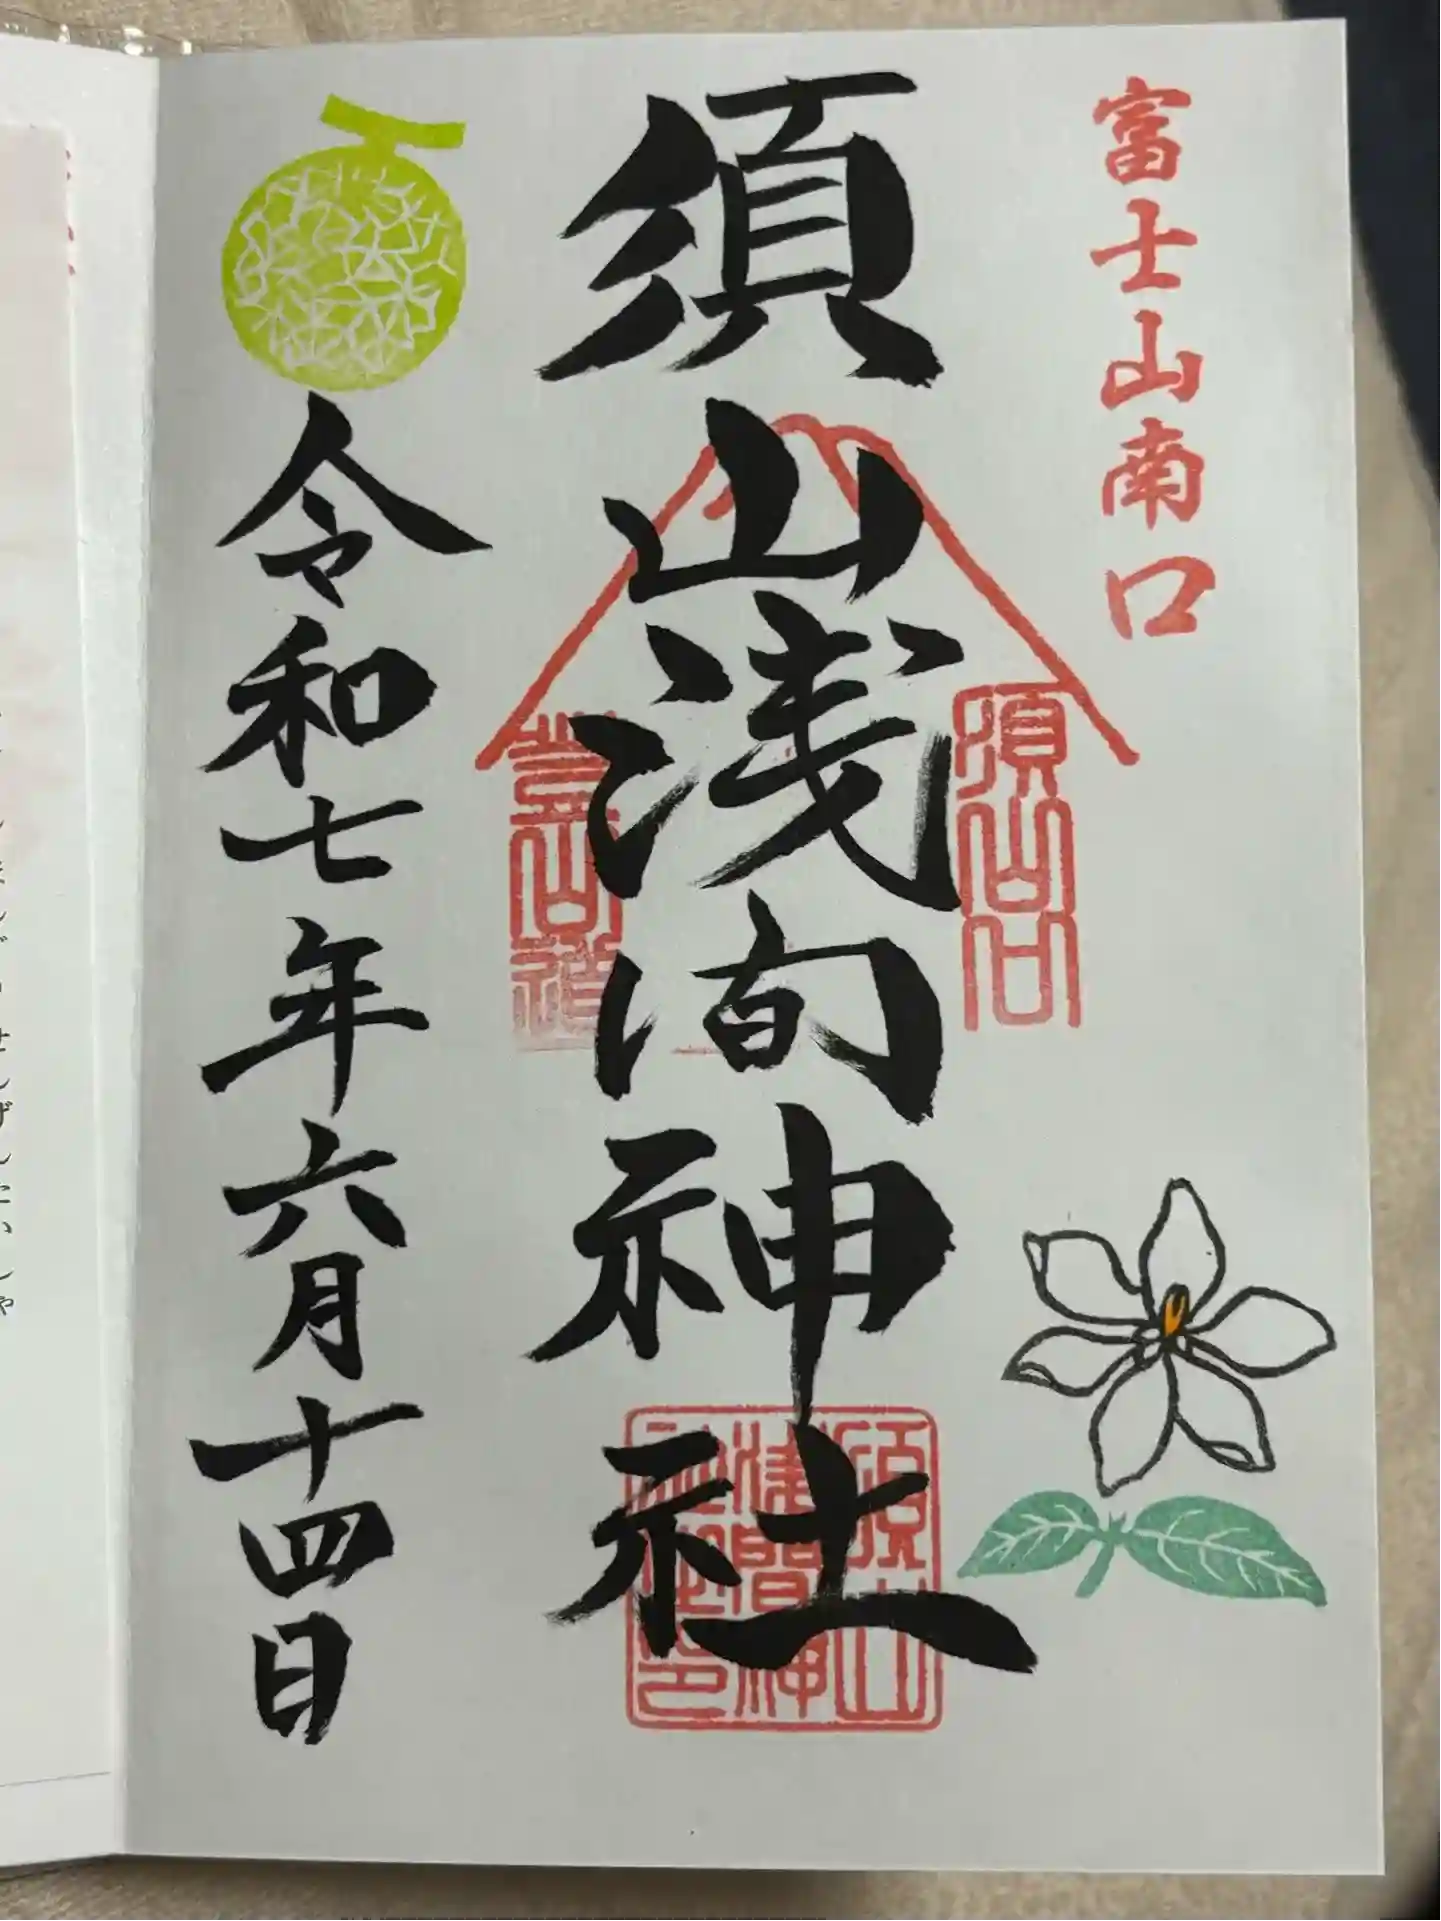 富士山南口
須山口
須山浅間神社
登山道
須山
浅間神
社之印
令和七年六月十四日